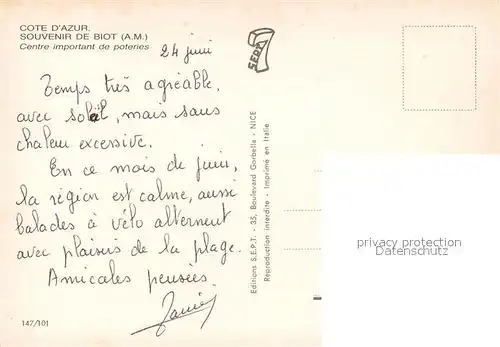 COTE D'AZUR.
SOUVENIR DE BIOT (A.M.)
Centre important de poteries
24 juin
SEPT
Temps très agréable,
avec soleil, mais sans
chaleur excessive.
En ce mois de juin,
la région est calme, aussi
balades à vélo alternent
avec plaisirs de la plage.
Amicales pensées.
147/101
Editions S.E.P.T. - 35, Boulevard Gorbella - NICE
Reproduction interdite - Imprimé en Italie
privacy protection
Datenschutz Overlay